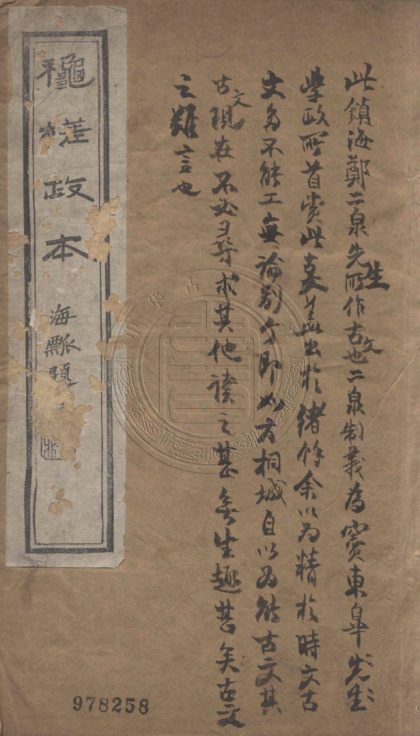 此鎮海鄭二泉先生所作古文也二泉制義為竇東皋先生
學政所首賞此蓋出於緒餘余以為精於時文古
文多不能工無論別个即如方桐城自以為能古文其
古文現在不必尋求其他讀之甚無生趣甚矣古文
之難言也
龝槎政本
海題
978258